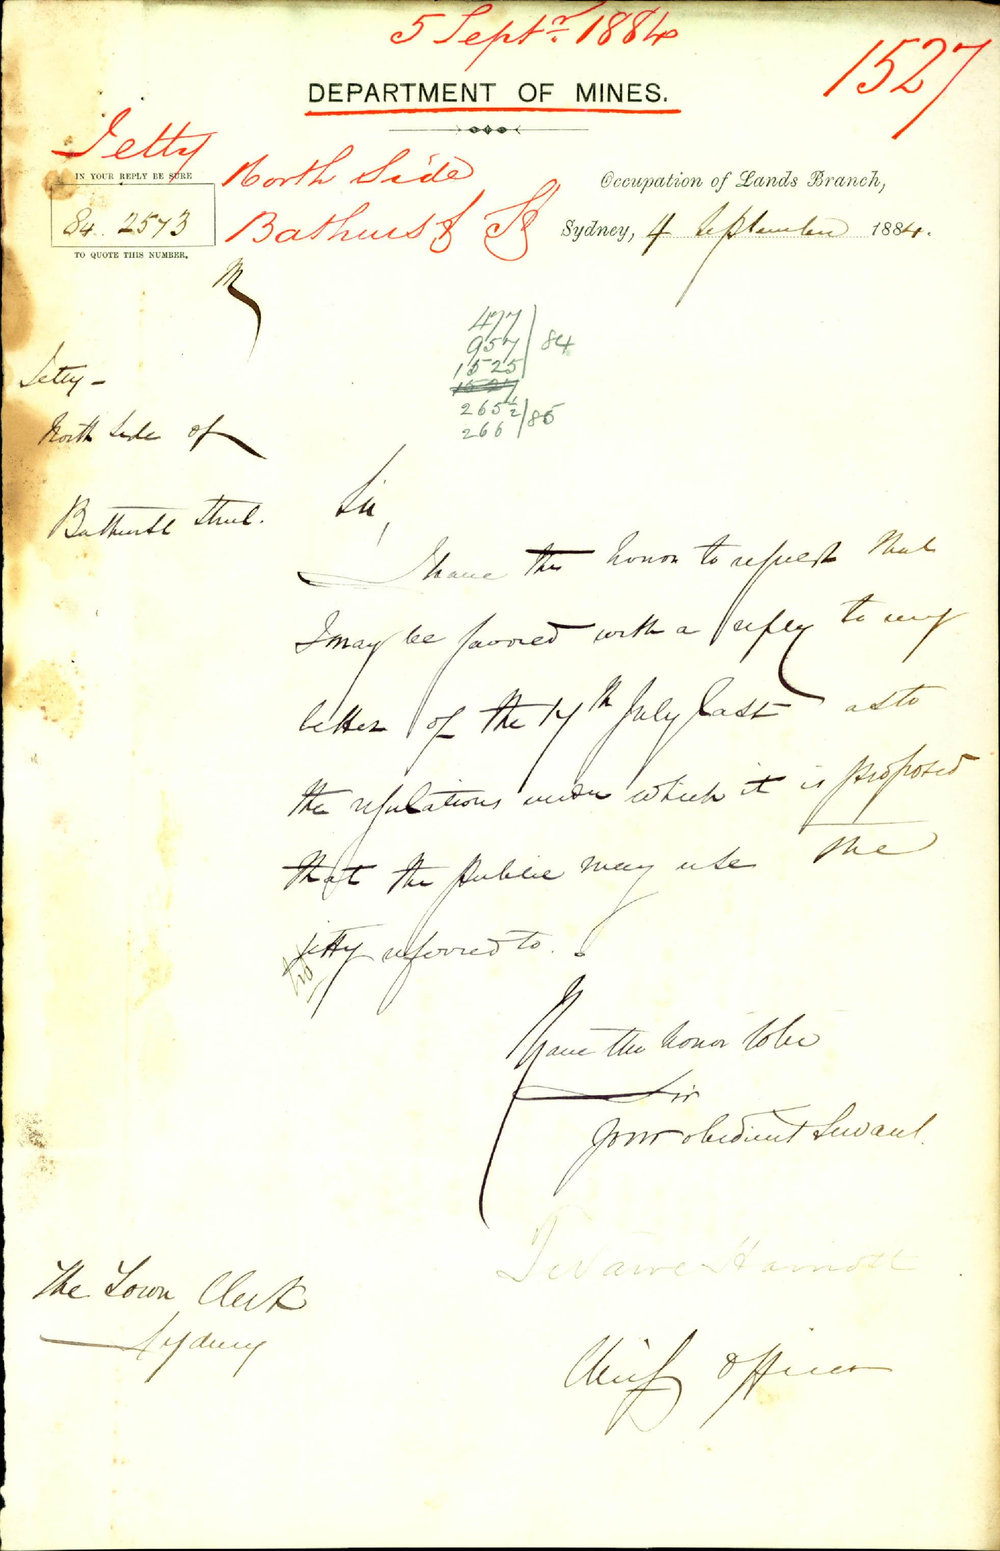 5 Septr. 1884
1527
DEPARTMENT OF MINES.
Jetty
North Side
Bathurst St
IN YOUR REPLY BE SURE
84. 2573
TO QUOTE THIS NUMBER.
Occupation of Lands Branch,
Sydney, 4 September 1884.
M
477
957
1525
84
1527
265½
266
85
Jetty –
North Side of
Bathurst Street.
Sir,
I have the honor to request that
I may be favored with a reply to my
letter of the 17th July last as to
the regulations under which it is proposed
that the public may use the
jetty referred to.
I have the honor to be
Sir
Your obedient Servant.
Harriott
Chief Officer
The Town Clerk
Sydney